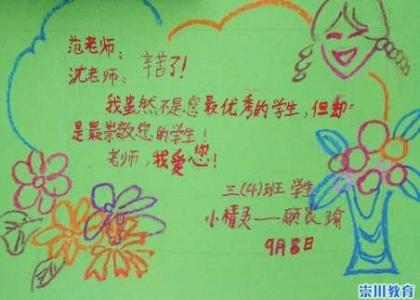 范老师：
沈老师：辛苦了！
我虽然不是您最优秀的学生，但却
是最崇敬您的学生！
老师，我爱您！
三(4)班 学生
小精灵——顾良瑜
9月8日
崇川教育